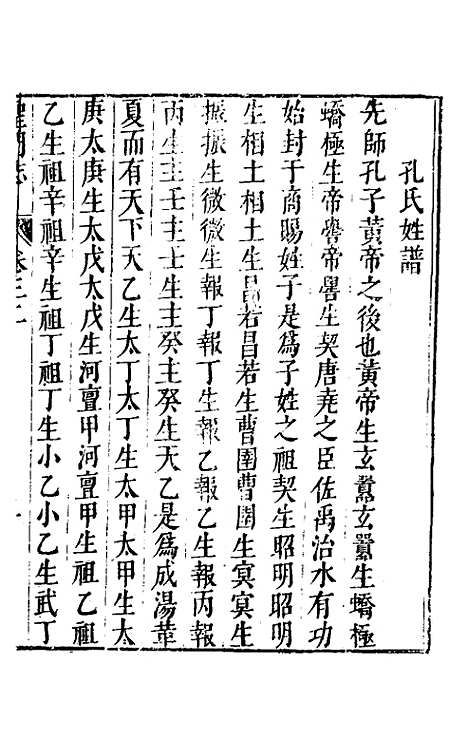 孔氏姓譜
先師孔子黃帝之後也黃帝生玄囂玄囂生蟜極
蟜極生帝嚳帝嚳生契唐堯之臣佐禹治水有功
始封于商賜姓子是為子姓之祖契生昭明昭明
生相土相土生昌若昌若生曹圉曹圉生冥冥生
振振生微微生報丁報丁生報乙報乙生報丙報
丙生主壬主壬生主癸主癸生天乙是為成湯革
夏而有天下天乙生太丁太丁生太甲太甲生太
庚太庚生太戊太戊生河亶甲河亶甲生祖乙祖
乙生祖辛祖辛生祖丁祖丁生小乙小乙生武丁
聖門志 卷三 一